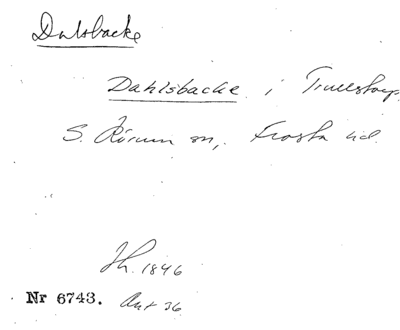 Dalsbacke
Dahlsbacke i Trulstorp
S. Rörum sn, Frosta hd.
Jh. 1846
Nr 6743. Ant 36